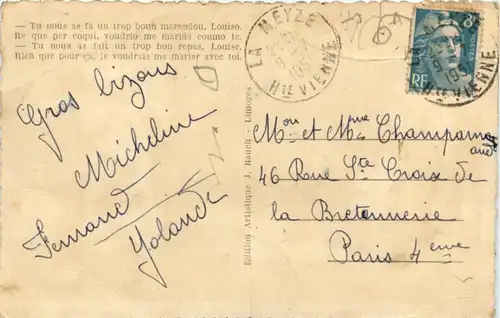 — Tu nous as fa un trop boun marendou, Louiso.
Re que per coqui, voudrio me maridá coumo te.
— Tu nous as fait un trop bon repas, Louise.
Rien que pour ça, je voudrais me marier avec toi.
Gros bizous
Micheline
Fernand
Yolande
Edition Artistique J. Rauch - Limoges
LA MEYZE
Hte VIENNE
RF
Hte VIENNE
Mon et Mme Champama
46 Rue Ste Croix de
la Bretonnerie
Paris 4eme